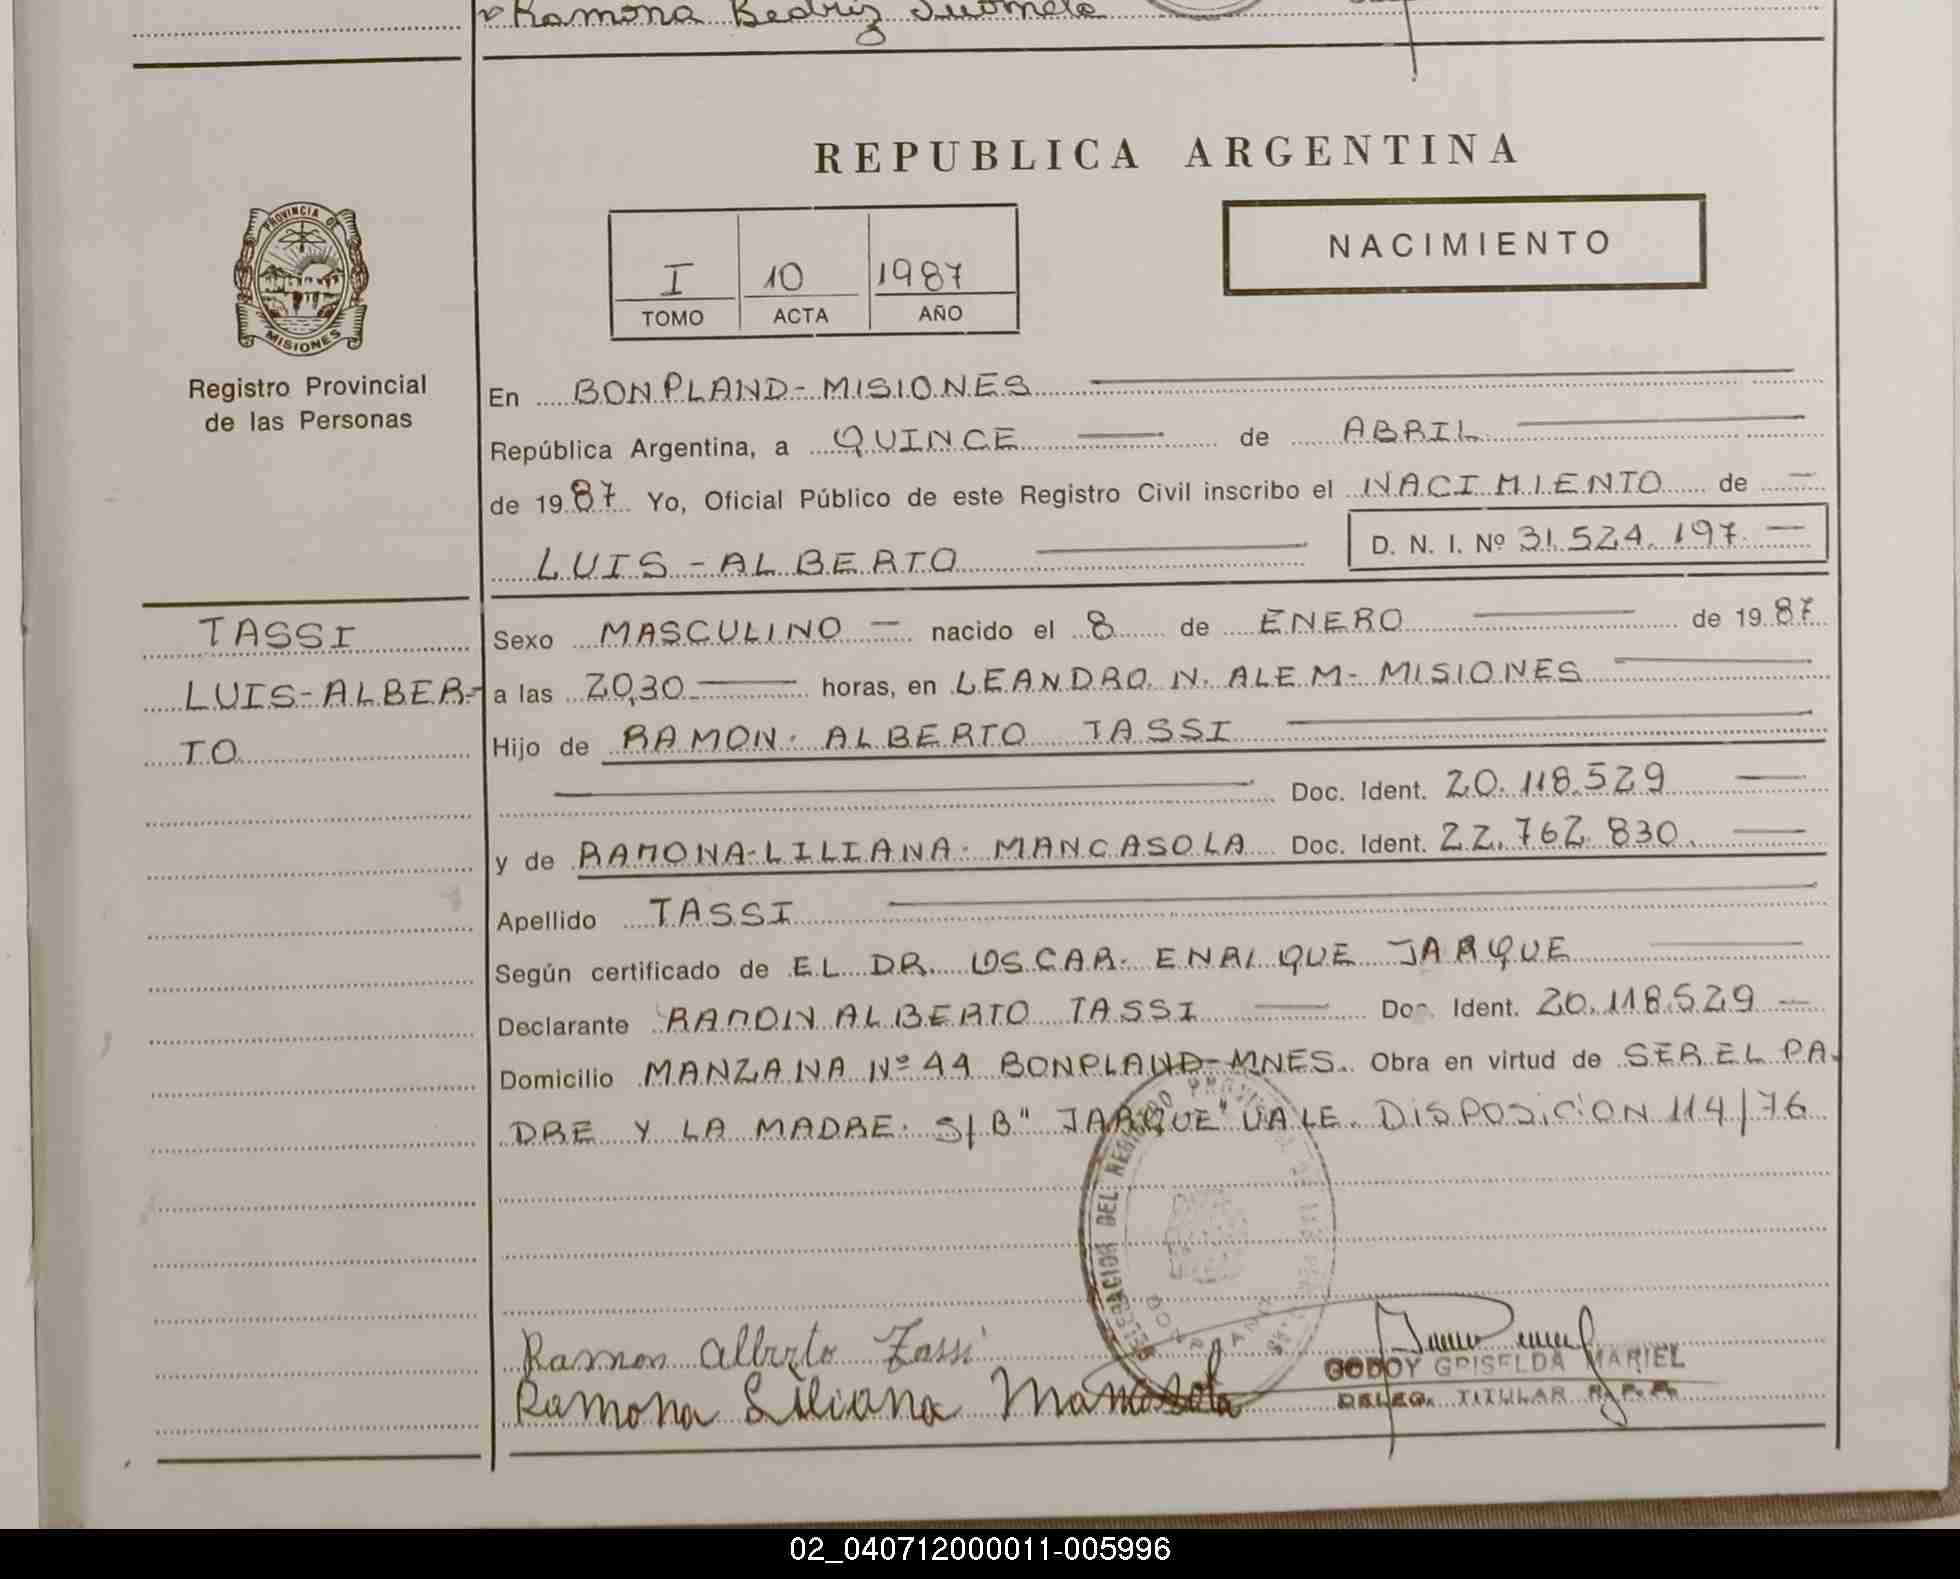 Ramona Beatriz
REPUBLICA ARGENTINA
PROVINCIA DE
MISIONES
I 10 1987
TOMO ACTA AÑO
NACIMIENTO
Registro Provincial
de las Personas
En BONPLAND - MISIONES
República Argentina, a QUINCE de ABRIL
de 1987 Yo, Oficial Público de este Registro Civil inscribo el NACIMIENTO de
LUIS - ALBERTO D. N. I. Nº 31.524.197
TASSI
LUIS-ALBER-
TO
Sexo MASCULINO nacido el 8 de ENERO de 1987
a las 20,30 horas, en LEANDRO N. ALEM - MISIONES
Hijo de RAMON. ALBERTO TASSI
Doc. Ident. 20.118.529
y de RAMONA-LILIANA. MANCASOLA Doc. Ident. 22.762.830.
Apellido TASSI
Según certificado de EL DR. OSCAR. ENRIQUE JARQUE
Declarante RAMON ALBERTO TASSI Doc. Ident. 20.118.529
Domicilio MANZANA Nº 44 BONPLAND-MNES. Obra en virtud de SER EL PA.
DRE Y LA MADRE. S/B" JARQUE" VALE. DISPOSICION 114/76
DELEGACION DEL REGISTRO
Ramon Alberto Tassi
Ramona Liliana Mancasola
GODOY GRISELDA MARIEL
DELEG. TITULAR R. P. P.
02_040712000011-005996